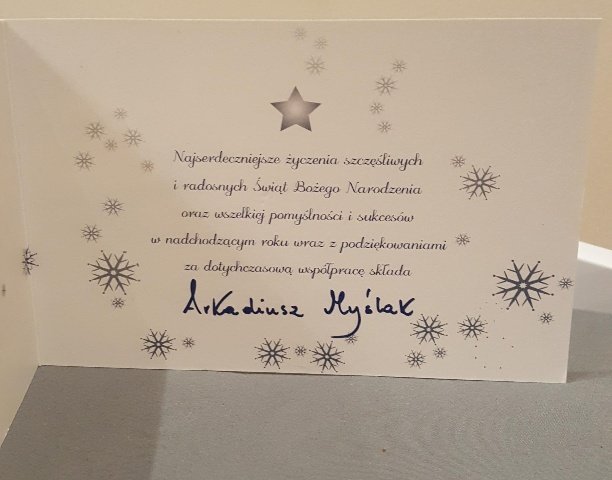 Najserdeczniejsze życzenia szczęśliwych
i radosnych Świąt Bożego Narodzenia
oraz wszelkiej pomyślności i sukcesów
w nadchodzącym roku wraz z podziękowaniami
za dotychczasową współpracę składa
Arkadiusz Myślak